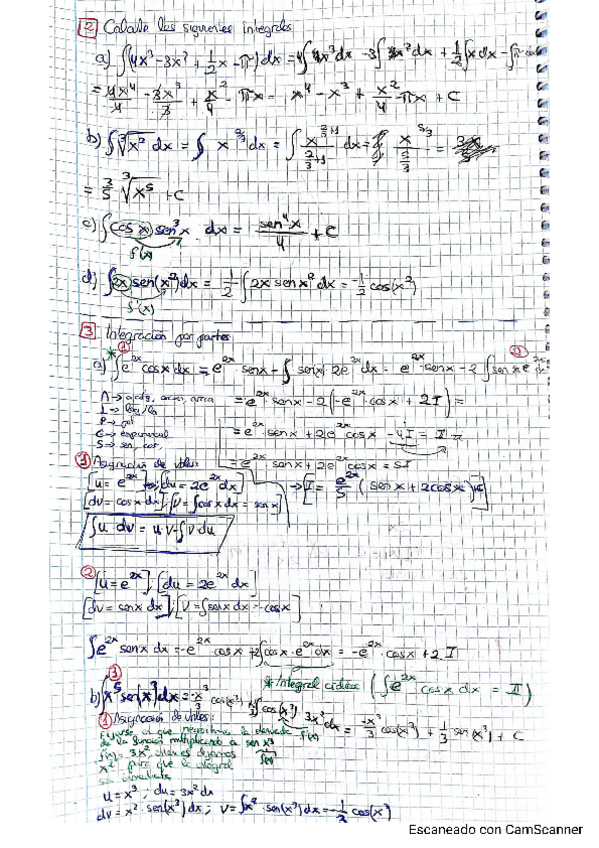 2 Calcula las siguientes integrales
a) ∫(4x³-3x²+½x-π)dx = 4∫x³dx - 3∫x²dx + ½∫xdx - ∫π dx
= 4x⁴/4 - 3x³/3 + x²/4 - πx = x⁴ - x³ + x²/4 - πx + C
b) ∫∛x² dx = ∫ x^(2/3) dx = ∫ x^(2/3+1)/(2/3+1) dx = x^(5/3)/(5/3) =
= 3/5 ∛x⁵ + C
c) ∫cos x sen³x dx = sen⁴x/4 + C
f'(x)
d) ∫2x sen(x²)dx = ½∫2x sen x² dx = -½ cos(x²)
f'(x)
3 Integración por partes
* 1 2
a) ∫e^(2x) cosx dx = e^(2x) · senx - ∫ senx · 2e^(2x) dx = e^(2x) · senx - 2∫senx e^(2x) dx
A→ arcos
= e^(2x) · senx - 2(-e^(2x) · cosx + 2I) =
L→ log/ln
P→ pol
= e^(2x) · senx + 2e^(2x) cosx - 4I = I
E→ exponencial
S→ sen, cos,
= e^(2x) · senx + 2e^(2x) cosx = 5I
1 Asignación de valores
[u = e^(2x)] [du = 2e^(2x) dx]
→ [I = e^(2x)/5 (senx + 2cosx)]
[dv = cosx dx]; [v = ∫cosx dx = senx]
∫u · dv = u·v - ∫v du
2 [u = e^(2x)]; [du = 2e^(2x) dx]
[dv = senx dx]; [v = ∫senx dx = -cosx]
∫e^(2x) senx dx = -e^(2x) cosx + 2∫cosx · e^(2x) dx = -e^(2x) · cosx + 2I
* Integral cíclica (∫e^(2x) cosx dx = I)
1
b) ∫x⁵ sen(x³)dx = -x³/3 cos(x³) + ⅓∫cos(x³) 3x² dx = -x³/3 cos(x³) + ⅓ sen(x³) + C
f'(x)
1 Asignación de valores:
de la función multiplicando a sen x³
x² para que la integral
sea inmediata
u = x³; du = 3x² dx
dv = x² · sen(x³)dx; v = ∫x² · sen(x³)dx = -⅓ cos(x³)
Escaneado con CamScanner